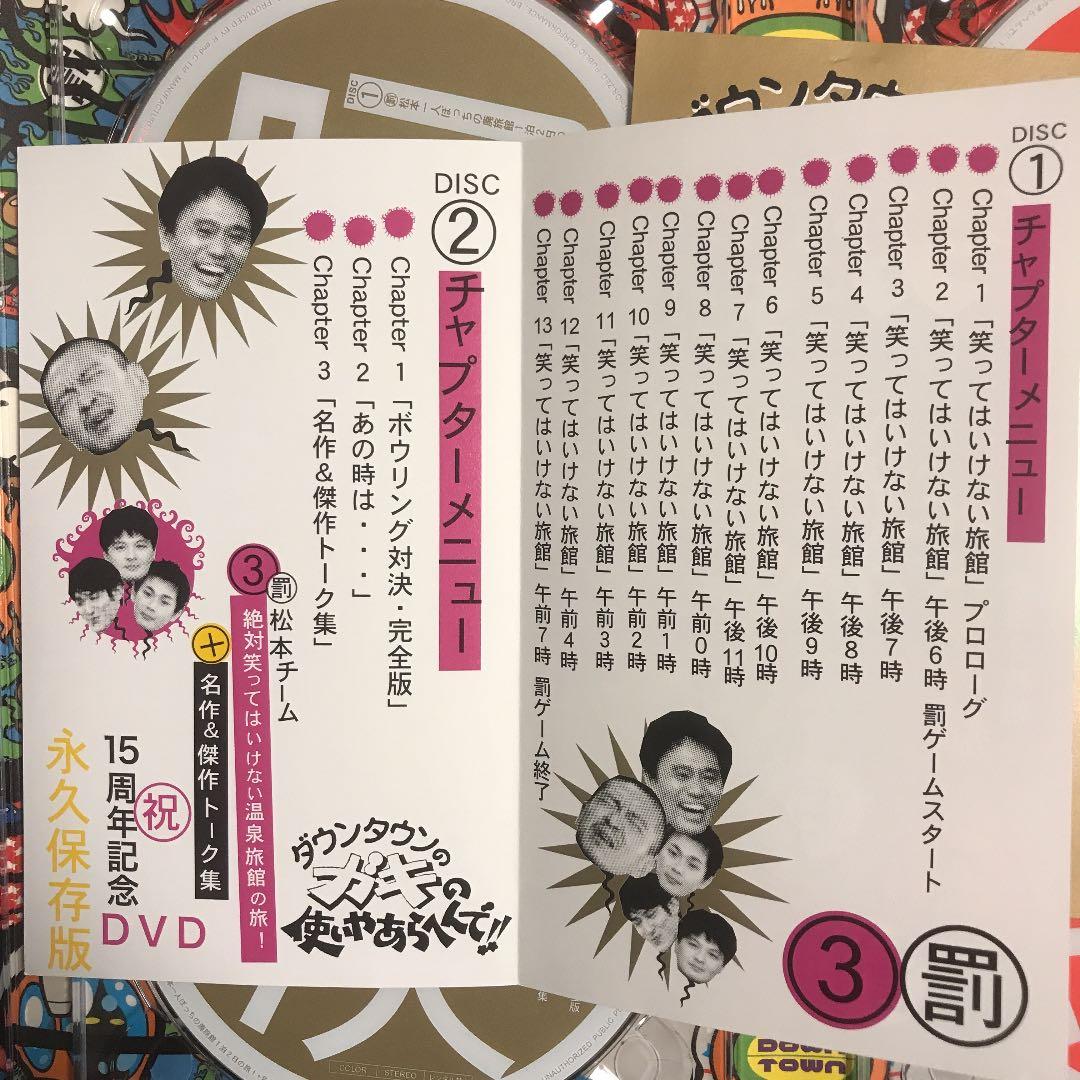 DISC
①
チャプターメニュー
Chapter 1 「笑ってはいけない旅館」 プロローグ
Chapter 2 「笑ってはいけない旅館」 午後6時 罰ゲームスタート
Chapter 3 「笑ってはいけない旅館」 午後7時
Chapter 4 「笑ってはいけない旅館」 午後8時
Chapter 5 「笑ってはいけない旅館」 午後9時
Chapter 6 「笑ってはいけない旅館」 午後10時
Chapter 7 「笑ってはいけない旅館」 午後11時
Chapter 8 「笑ってはいけない旅館」 午前0時
Chapter 9 「笑ってはいけない旅館」 午前1時
Chapter 10 「笑ってはいけない旅館」 午前2時
Chapter 11 「笑ってはいけない旅館」 午前3時
Chapter 12 「笑ってはいけない旅館」 午前4時
Chapter 13 「笑ってはいけない旅館」 午前7時 罰ゲーム終了
罰
3
DISC
②
チャプターメニュー
Chapter 1 「ボウリング対決・完全版」
Chapter 2 「あの時は・・・」
Chapter 3 「名作&傑作トーク集」
ダウンタウンの
ガキの
使いやあらへんで!!
罰松本チーム
3 絶対笑ってはいけない温泉旅館の旅!
+ 名作&傑作トーク集
祝
15周年記念
DVD
永久保存版
DISC
① 罰 松本一人ぼっちの廃旅館1泊2日の
ダウンタウ
DOWN
TOWN
COLOR
STEREO